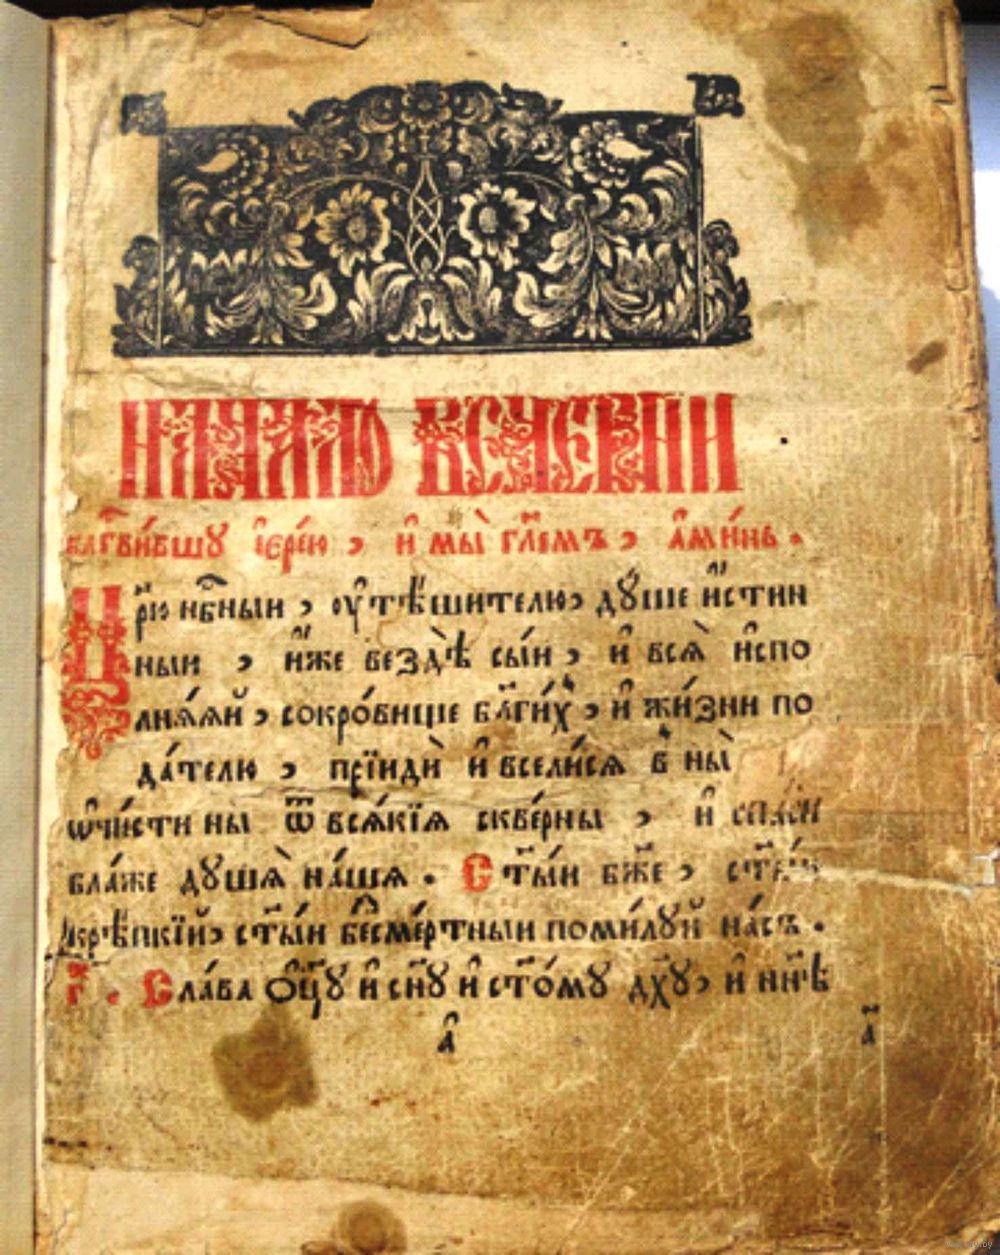 НАЧАЛО ВЕЧЕРНИ
блг҃ви́вшу і҆ере́ю , и҆ мы̀ гл҃емъ , а҆ми́нь .
Цр҃ю нб҃ныи , ᲂу҆тѣ́шителю, дш҃е и҆́стин
ныи , и҆́же вездѣ̀ сы́и , и҆ всѧ̀ и҆спо
лнѧ́ѧй , сокро́вище бл҃ги́хъ , и҆ жи́зни по
да́телю , прїидѝ и҆ всели́сѧ в ны̀
ѡ҆чи́сти ны ѿ всѧ́кїѧ скве́рны , и҆ спаси
бла́же дꙋшѧ̀ на́шѧ . Ст҃ы́и бж҃е , ст҃ы́и
крѣ́пкїй, ст҃ы́и бесме́ртныи поми́лꙋй на́съ .
г҃ . Сла́ва ѻ҆ц҃ꙋ̀ и҆ сн҃ꙋ и҆ ст҃о́мꙋ дх҃ꙋ, и҆ нн҃ѣ
а҆ а҃